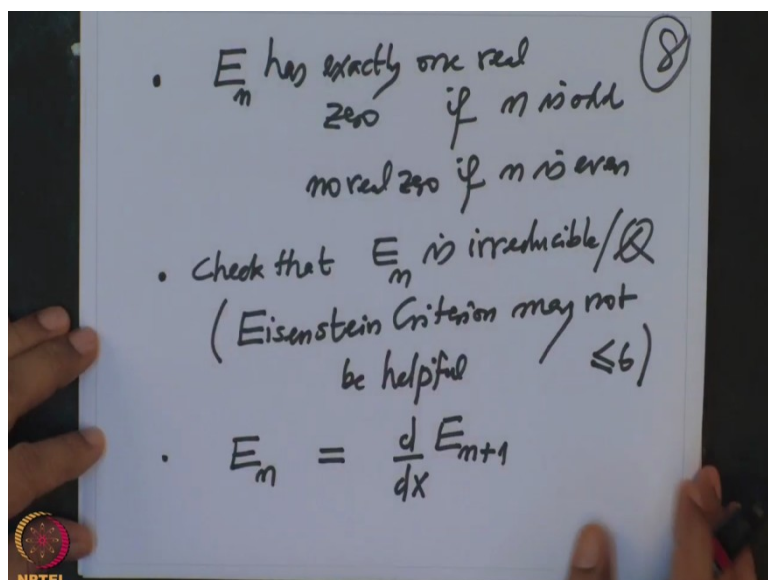 8
• E_n has exactly one real
zero if n is odd
no real zero if n is even
• Check that E_n is irreducible/ℚ
(Eisenstein Criterion may not
be helpful / ≤6)
• E_n = d/dx E_{n+1}
NPTEL